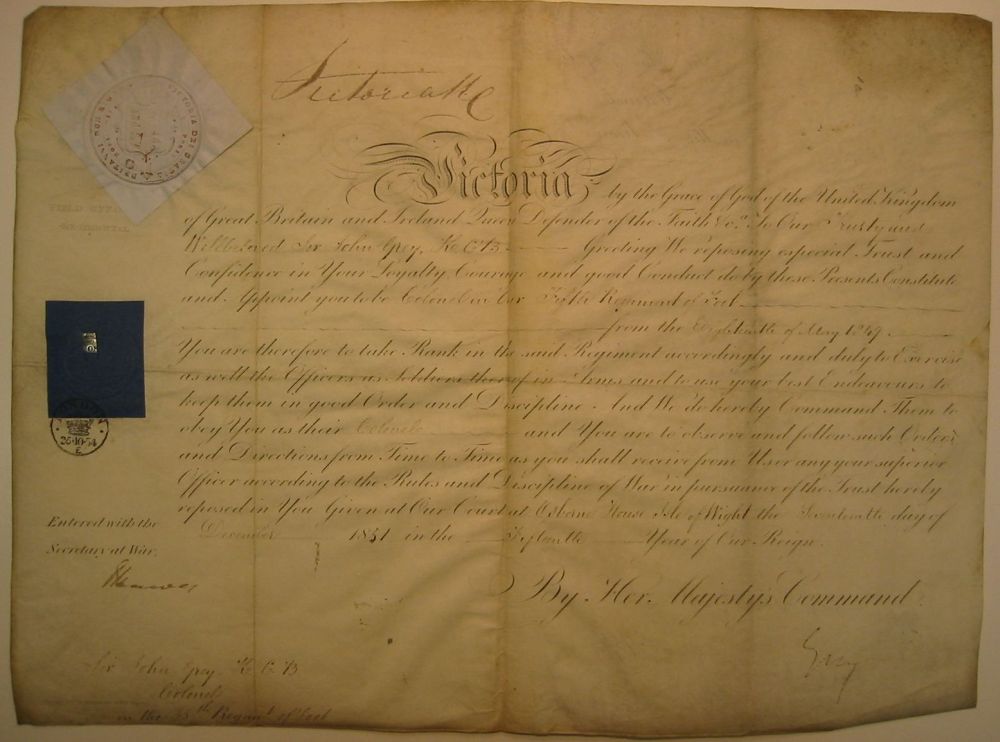 Victoria R
VICTORIA DEI GRATIA BRITANN
FIELD OFFICER
Victoria by the Grace of God of the United Kingdom
of Great Britain and Ireland Queen Defender of the Faith &c. To Our Trusty and
Wellbeloved Sir John Grey, K.C.B. Greeting We reposing especial Trust and
Confidence in Your Loyalty, Courage and good Conduct do by these Presents Constitute
and Appoint you to be Colonel in Our Fifth Regiment of Foot
from the Eighteenth of May 1849.
You are therefore to take Rank in the said Regiment accordingly and duly to Exercise
as well the Officers as Soldiers thereof in Arms and to use your best Endeavours to
keep them in good Order and Discipline. And We do hereby Command Them to
obey You as their Colonel and You are to observe and follow such Orders
and Directions from Time to Time as you shall receive from Us or any your superior
Officer according to the Rules and Discipline of War in pursuance of the Trust hereby
reposed in You Given at Our Court at Osborne House Isle of Wight the day of
December 1851 in the Fifteenth Year of Our Reign.
By Her Majesty's Command
Grey
26·10·54
E
Entered with the
Secretary at War.
Sir John Grey K.C.B
Colonel
in the 5th Regiment of Foot